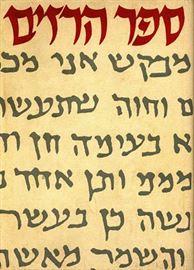 ספר הרזים
מבקש אני מכ
ם וחוה שתעשו
א בעימה חן וח
ממני ותן אחד מ
נשה כן בעשר
והשמר מאשה